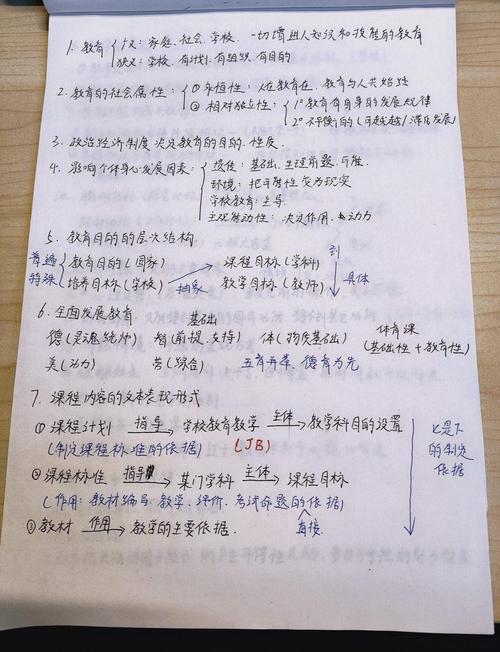 1. 教育 { 广义: 家庭、社会、学校. 一切增进人知识和技能的教育
狭义: 学校, 有计划、有组织、有目的
2. 教育的社会属性: { ① 永恒性: 人在教育在, 教育与人共始终
② 相对独立性: { 1° 教育有自身的发展规律
2° 不平衡的 (可超越/滞后发展)
3. 政治经济制度 决定教育的目的、性质
4. 影响个体身心发展因素: { 遗传: 基础、生理前提、可能
环境: 把可能性变为现实
学校教育: 主导
主观能动性: 决定作用、动力
5. 教育目的的层次结构 到
普遍 { 教育目的 (国家) 课程目标 (学科)
特殊 培养目标 (学校) 抽象 教学目标 (教师) 具体
6. 全面发展教育 基础
德 (灵魂统帅) 智 (前提、支持) 体 (物质基础) 体育课 (基础性 + 教育性)
美 (动力) 劳 (综合) 五育并举, 德育为先
7. 课程内容的文本表现形式
① 课程计划 指导→ 学校教育教学 主体→ 教学科目的设置
(制定课程标准的依据) (JB)
② 课程标准 指导→ 某门学科 主体→ 课程目标
(作用: 教材编写、教学、评价、考试命题的依据)
直接
③ 教材 作用→ 教学的主要依据
上是下
的制定
依据